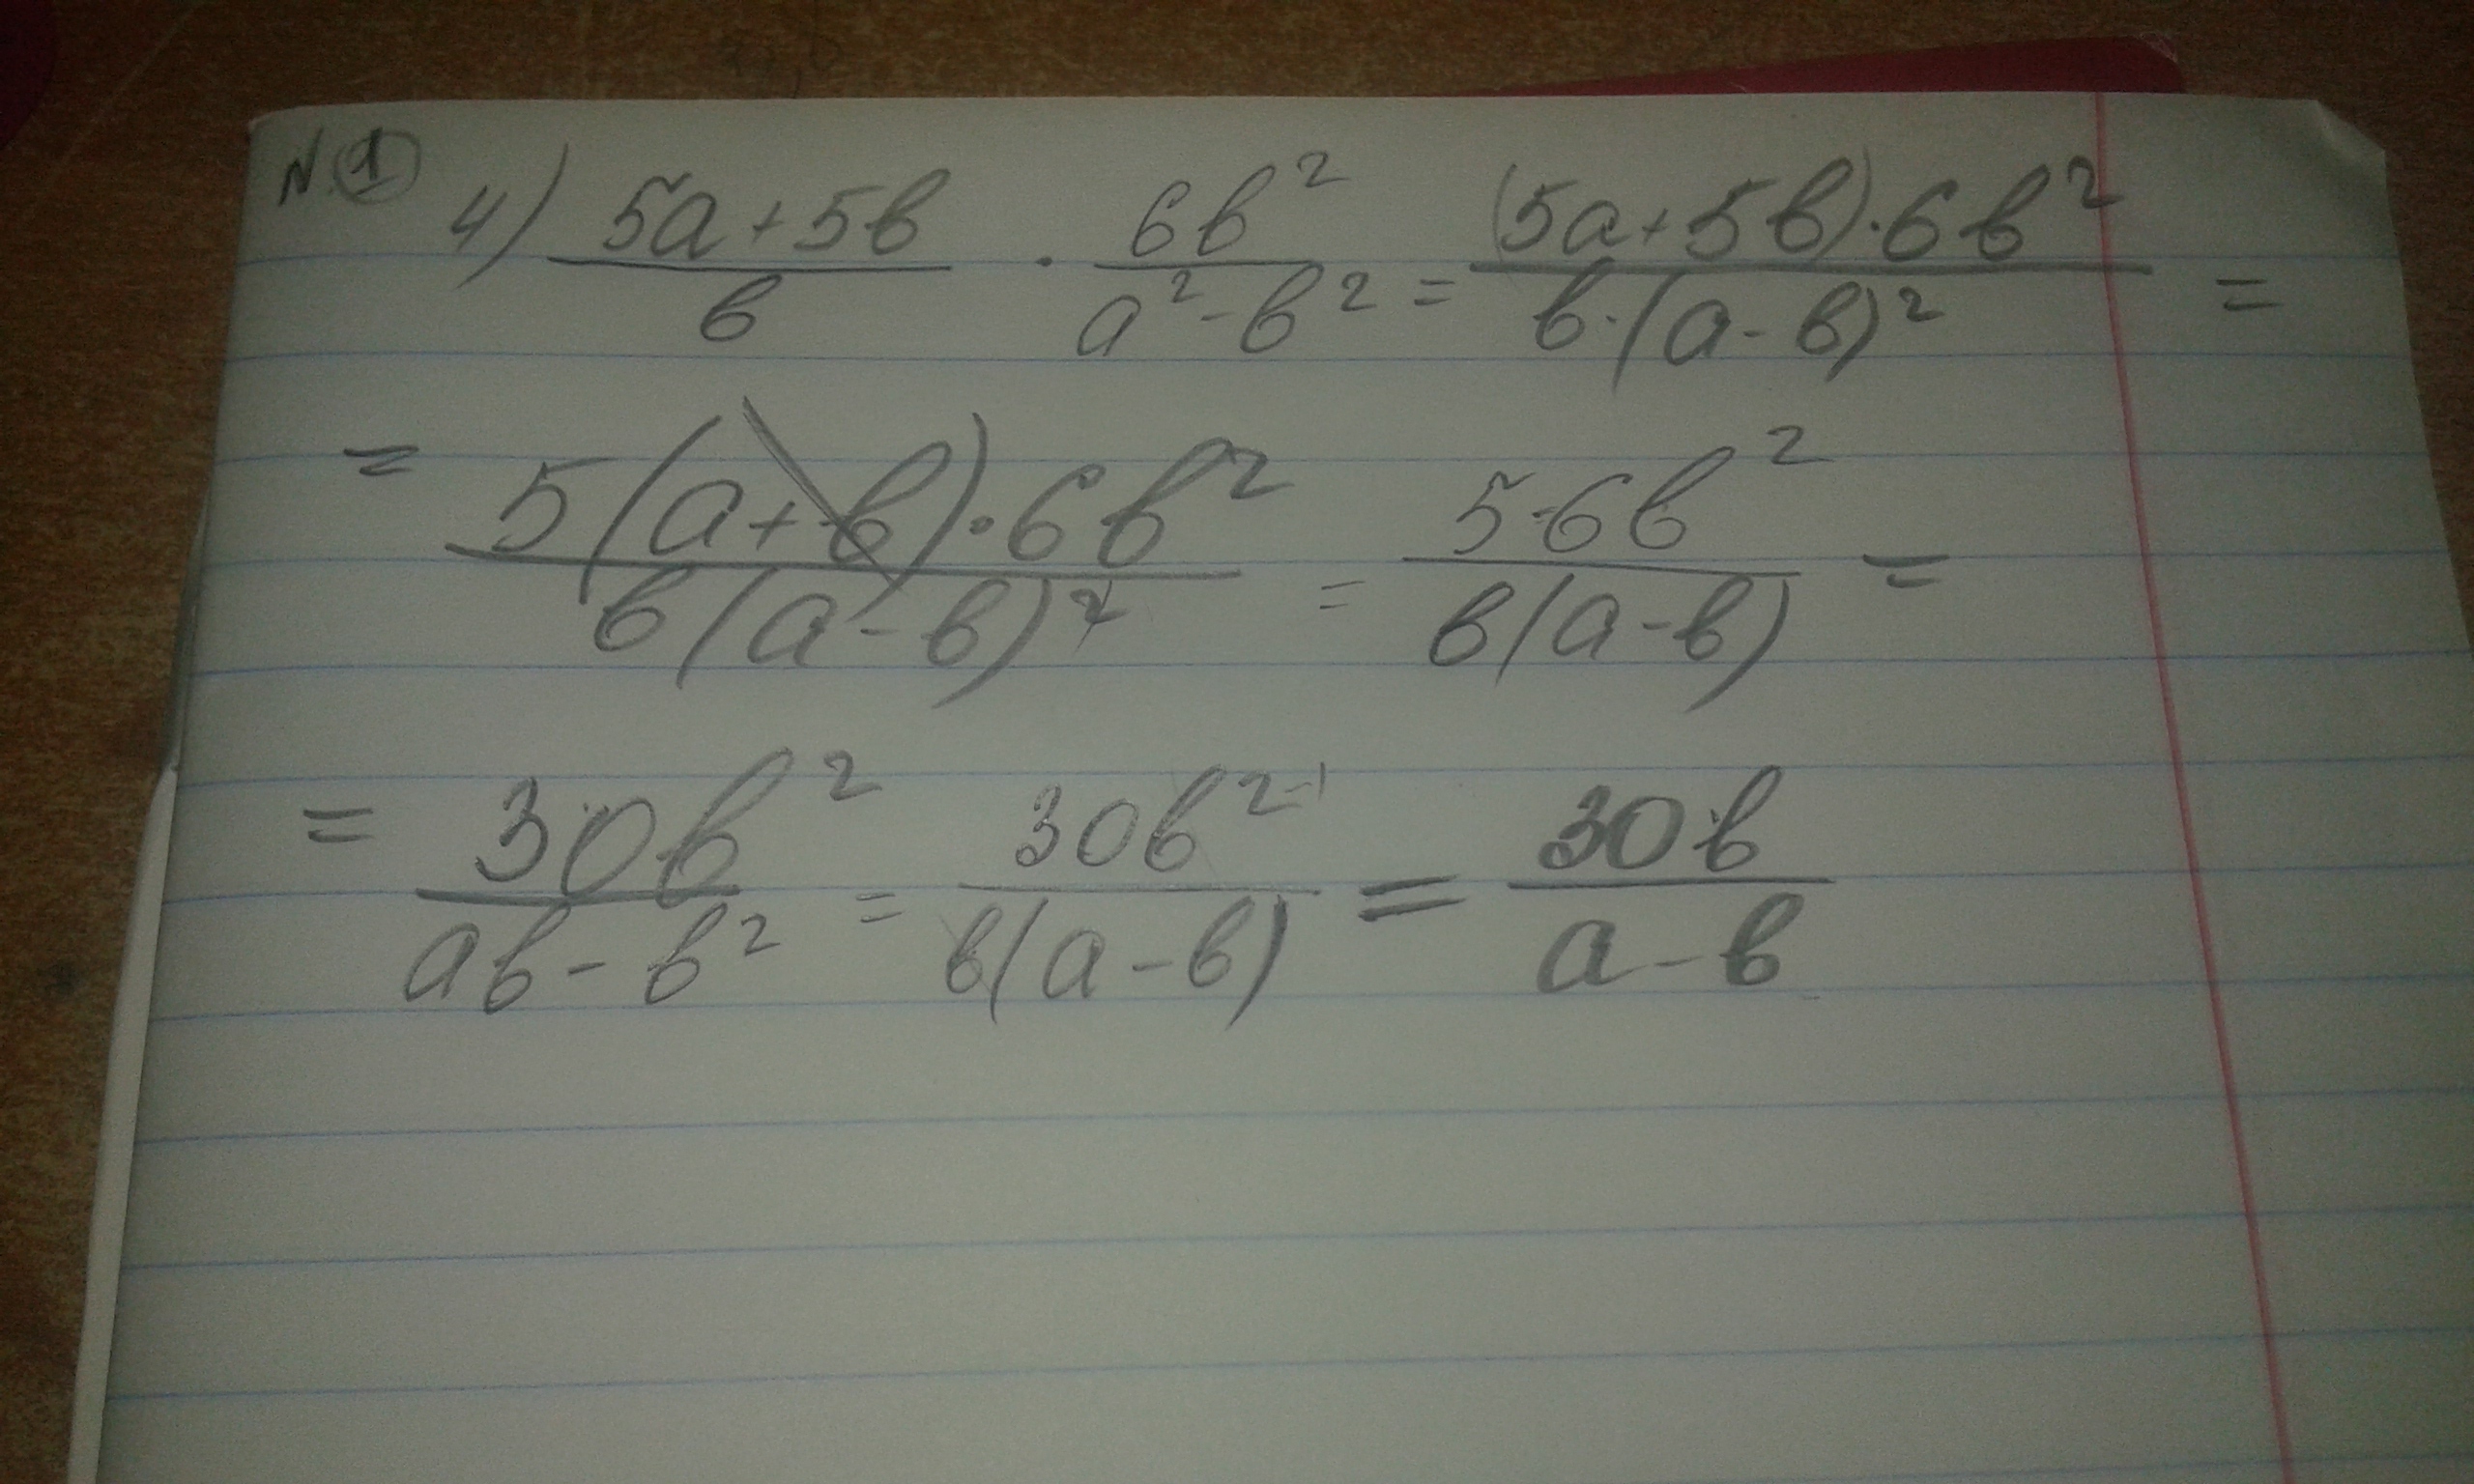 N.1 4) (5a+5b)/b · 6b²/(a²-b²) = (5a+5b)·6b²/(b·(a-b)²) =
= 5(a+b)·6b²/(b(a-b)²) = 5·6b²/(b(a-b)) =
= 30b²/(ab-b²) = 30b²⁻¹/(b(a-b)) = 30b/(a-b)